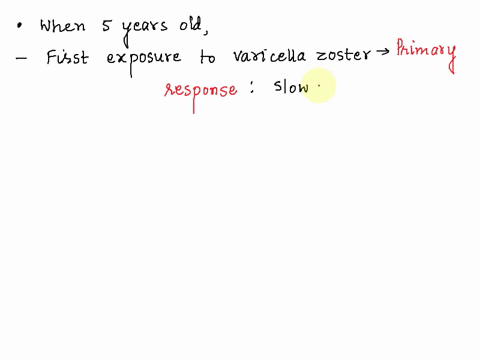 • When 5 years old,
- First exposure to varicella zoster → Primary
response : slow